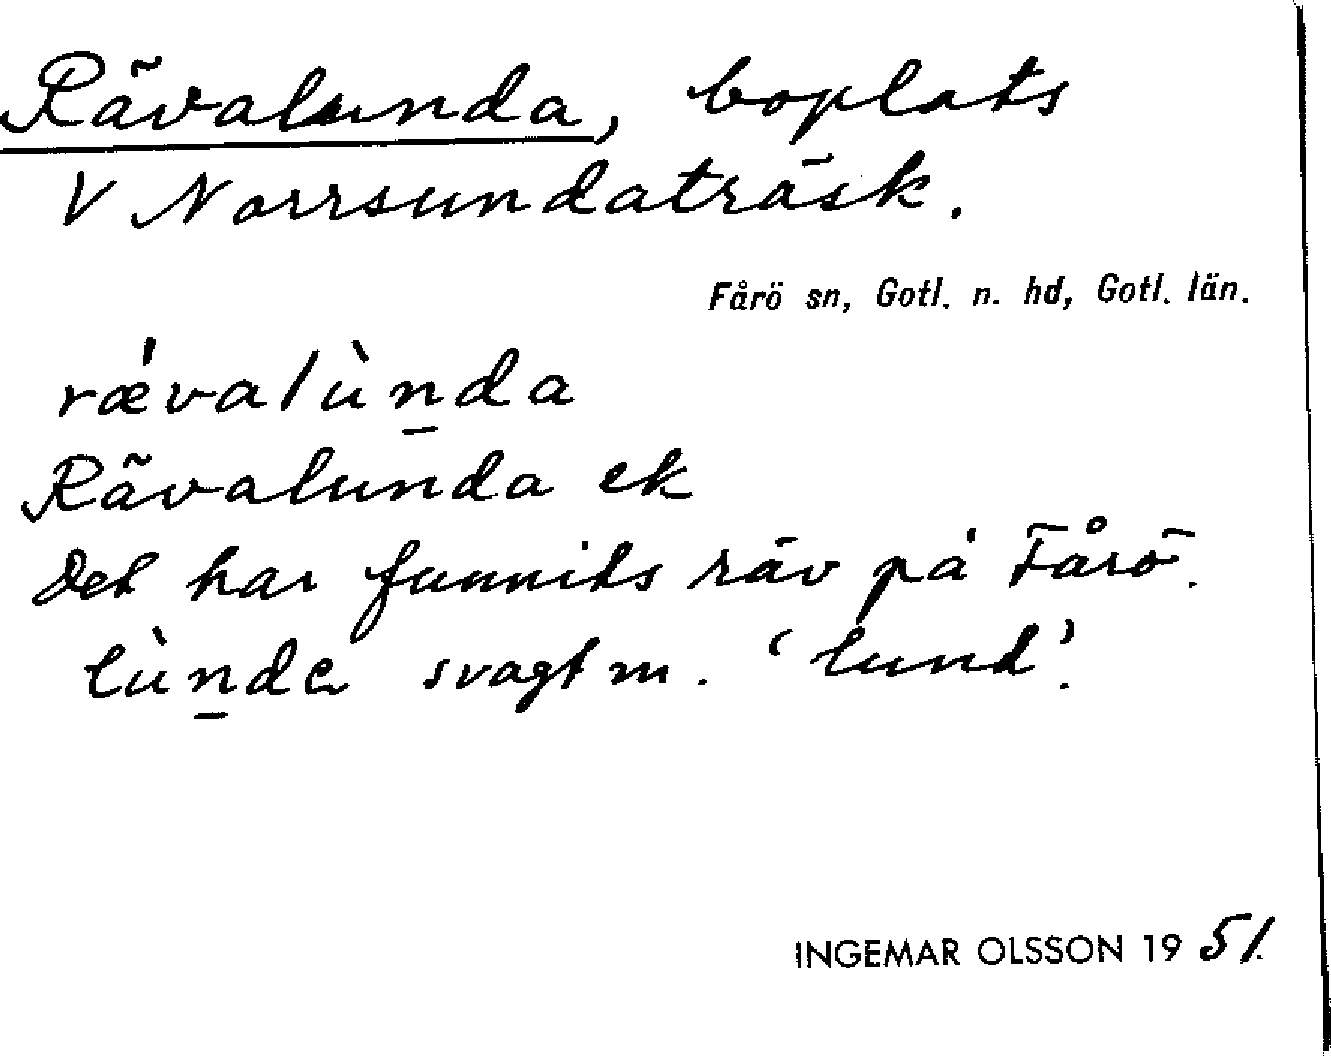 Rävalunda, boplats
V Norrsundaträsk.
Fårö sn, Gotl. n. hd, Gotl. län.
rǽvalùn̲da
Rävalunda ek
Det har funnits räv på Fårö.
lùn̲de svagt m. 'lund'.
INGEMAR OLSSON 19 51.